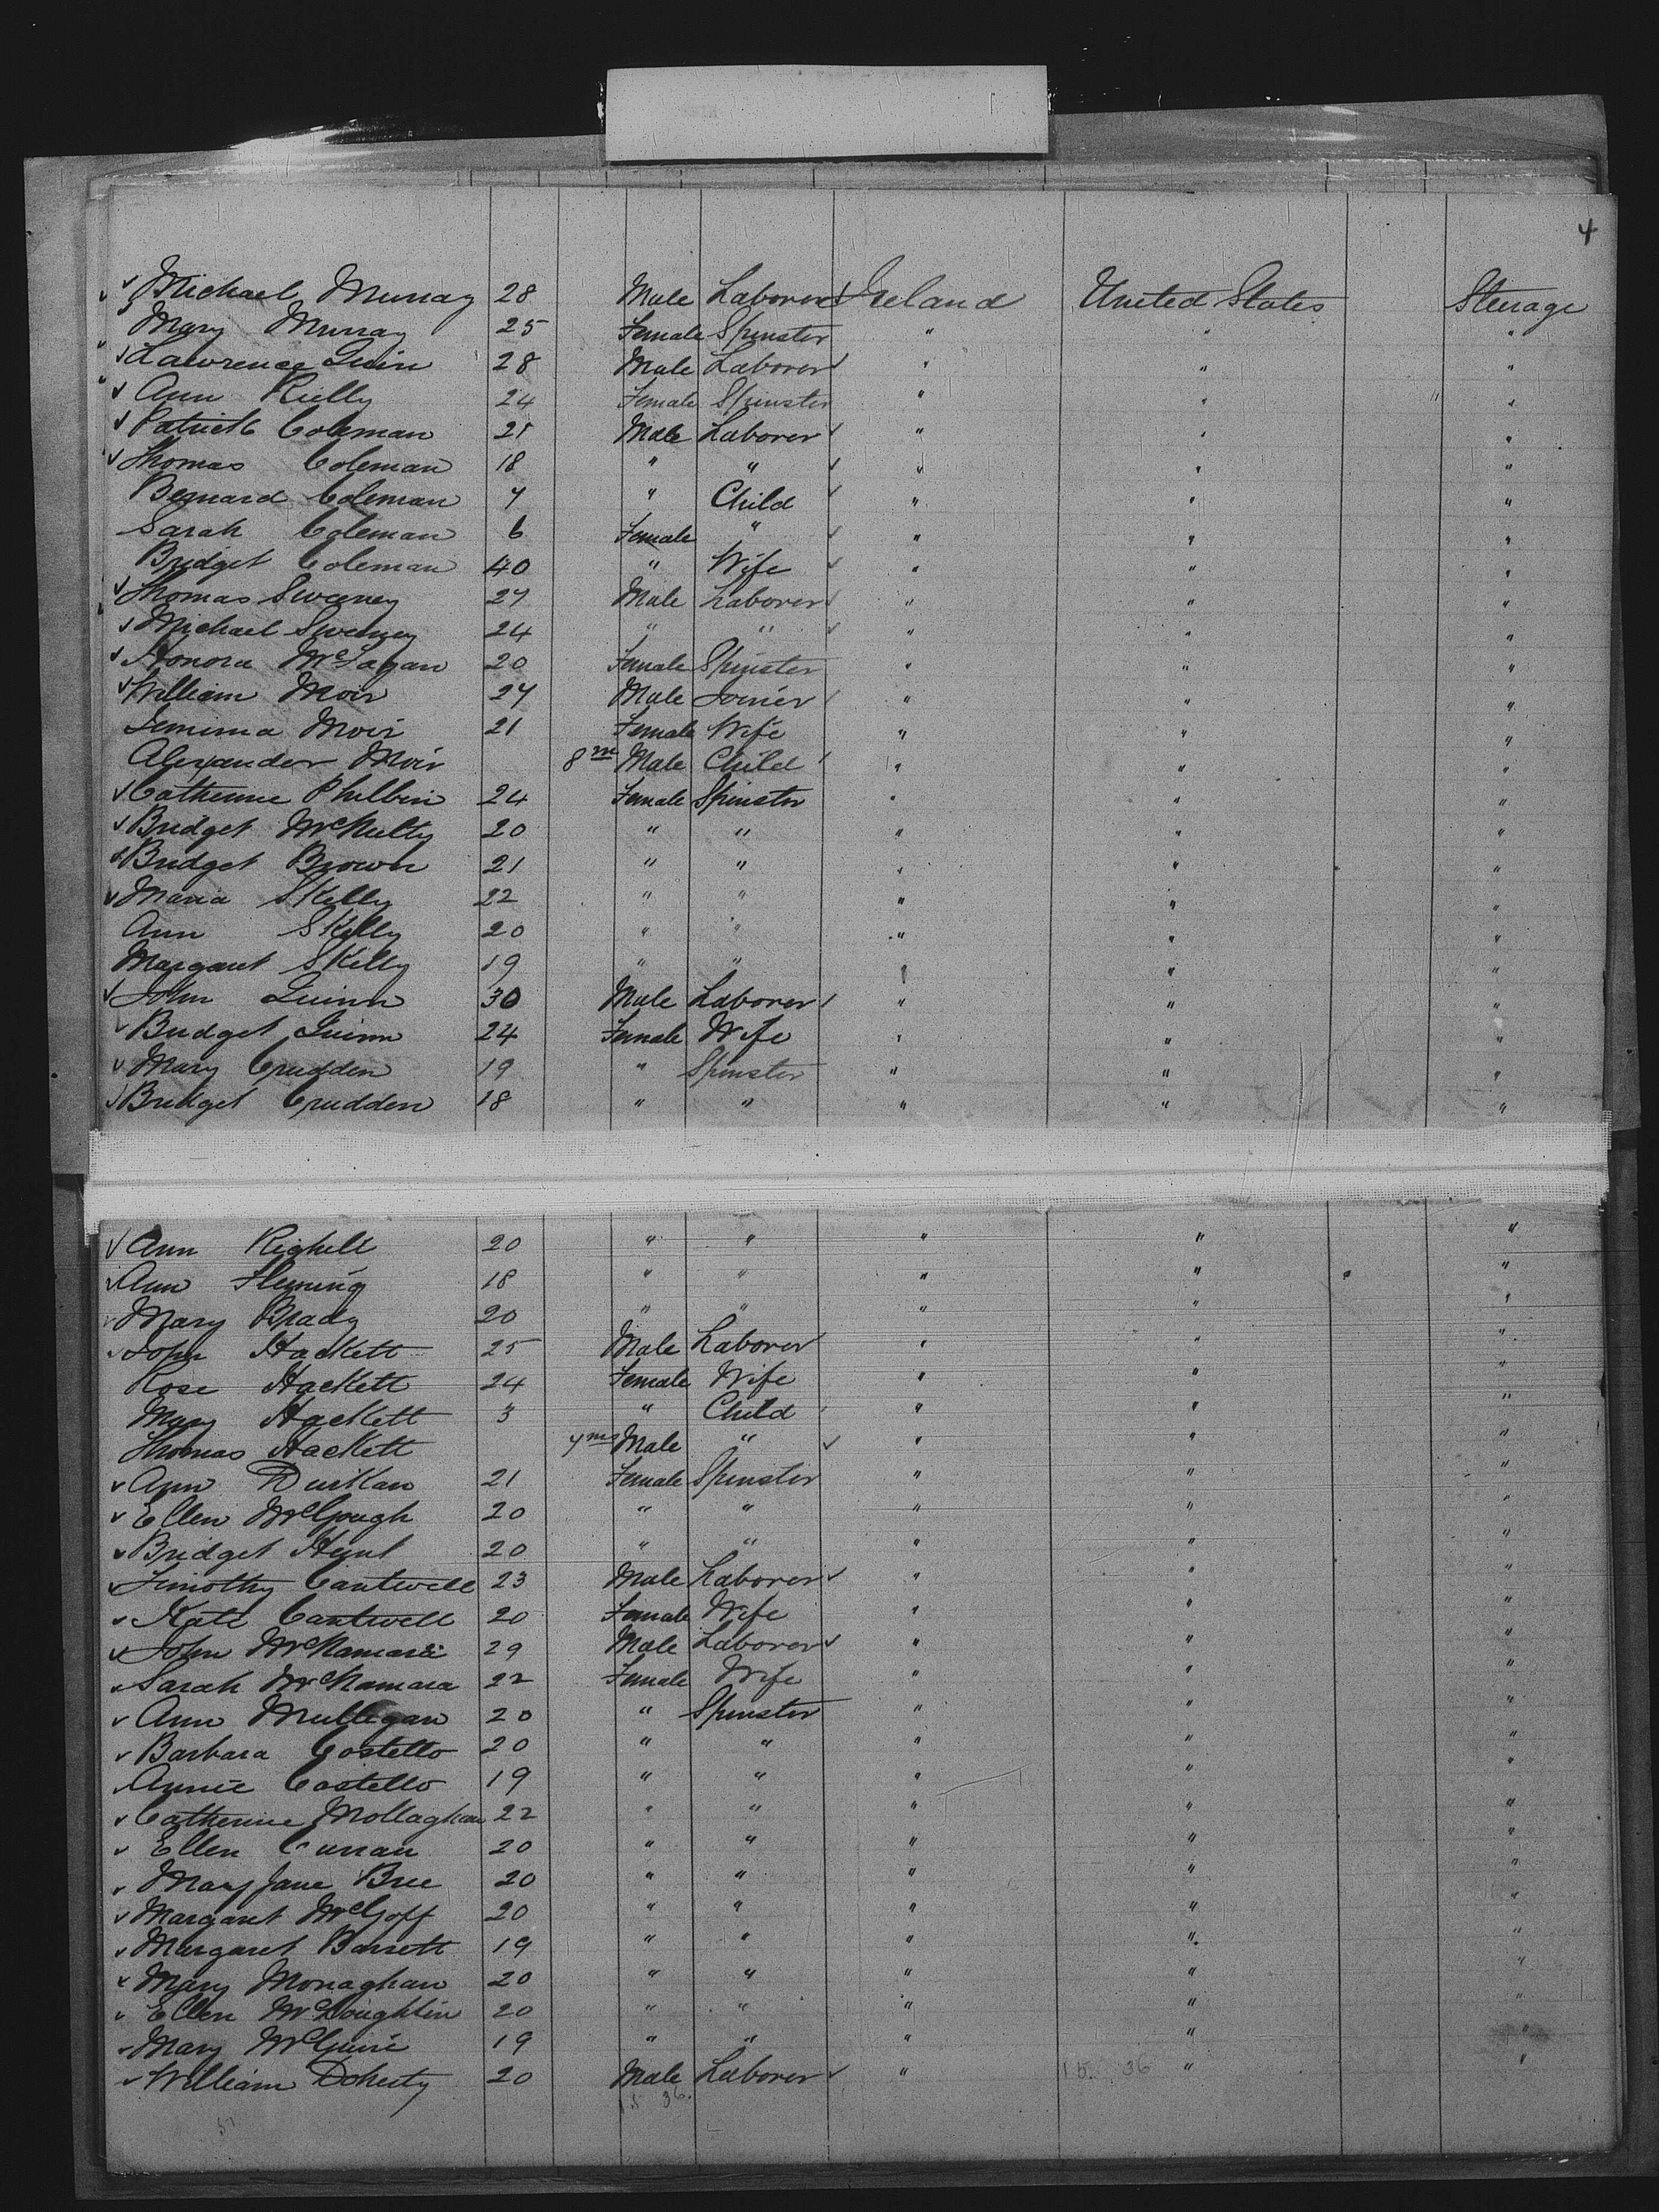 4
Michael Murray 28 Male Laborer Ireland United States Steerage
Mary Murray 25 Female Spinster " " "
Lawrence Quin 28 Male Laborer " " "
Ann Rielly 24 Female Spinster " " "
Patrick Coleman 21 Male Laborer " " "
Thomas Coleman 18 " " " " "
Bernard Coleman 7 " Child " " "
Sarah Coleman 6 Female " " " "
Bridget Coleman 40 " Wife " " "
Thomas Sweeney 27 Male Laborer " " "
Michael Sweeney 24 " " " " "
Honora 20 Female Spinster " " "
William Moir 27 Male Joiner " " "
Jemima Moir 21 Female Wife " " "
Alexander Moir 8m Male Child " " "
Catherine Philbin 24 Female Spinster " " "
Bridget McNulty 20 " " " " "
Bridget Brown 21 " " " " "
Maria Skelly 22 " " " " "
Ann Skelly 20 " " " " "
Margaret Skelly 19 " " " " "
John Quinn 30 Male Laborer " " "
Bridget Quinn 24 Female Wife " " "
Mary Crudden 19 " Spinster " " "
Bridget Crudden 18 " " " " "
Ann 20 " " " " "
Ann Fleming 18 " " " " "
Mary Brady 20 " " " " "
John Hackett 25 Male Laborer " " "
Rose Hackett 24 Female Wife " " "
Mary Hackett 3 " Child " " "
Thomas Hackett 7ms Male " " " "
Ann Durkan 21 Female Spinster " " "
Ellen McGough 20 " " " " "
Bridget Hunt 20 " " " " "
Timothy Cantwell 23 Male Laborer " " "
Kate Cantwell 20 Female Wife " " "
John McNamara 29 Male Laborer " " "
Sarah McNamara 22 Female Wife " " "
Ann Mulligan 20 " Spinster " " "
Barbara Costello 20 " " " " "
Annie Costello 19 " " " " "
Catherine Mollaghan 22 " " " " "
Ellen Curran 20 " " " " "
Mary Jane Bree 20 " " " " "
Margaret McGoff 20 " " " " "
Margaret Barrett 19 " " " " "
Mary Monaghan 20 " " " " "
Ellen McLoughlin 20 " " " " "
Mary McGuire 19 " " " " "
William Doherty 20 Male Laborer " 15. 36 " "
15 36.
51